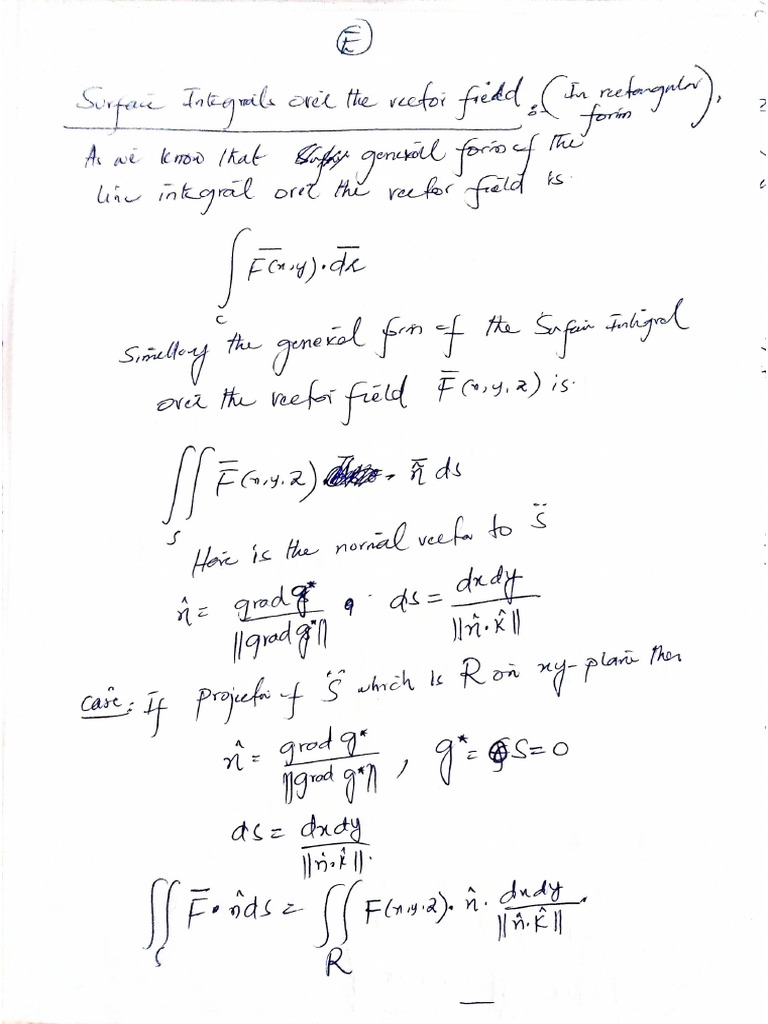 E
Surface Integrals over the vector field :- (In rectangular form),
As we know that general form of the
line integral over the vector field is.
∫_C F̄(x,y)·dr̄
Similarly the general form of the Surface Integral
over the vector field F̄(x,y,z) is.
∬_S F̄(x,y,z) · n̄ ds
Here is the normal vector to "S"
n̂ = grad g* / ||grad g*|| , ds = dxdy / ||n̂·k̂||
Case: If projection of "S" which is R on xy-plane then
n̂ = grad g* / ||grad g*|| , g* = S = 0
ds = dxdy / ||n̂·k̂||.
∬_S F̄·n̂ds = ∬_R F(x,y,z)·n̂· dxdy / ||n̂·k̂||.